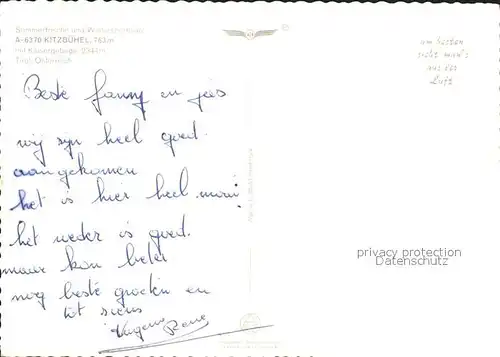 Sommerfrische und Wintersportplatz
A-6370 KITZBÜHEL, 763 m
mit Kaisergebirge, 2344 m
Tirol, Österreich
am besten
sieht man's
aus der
Luft
Beste fanny en
wij syn heel goed
aangekomen
het is hier heel mooi
het weder is goed.
maar kon beter
nog beste groeten en
tot siens
privacy protection
Datenschutz